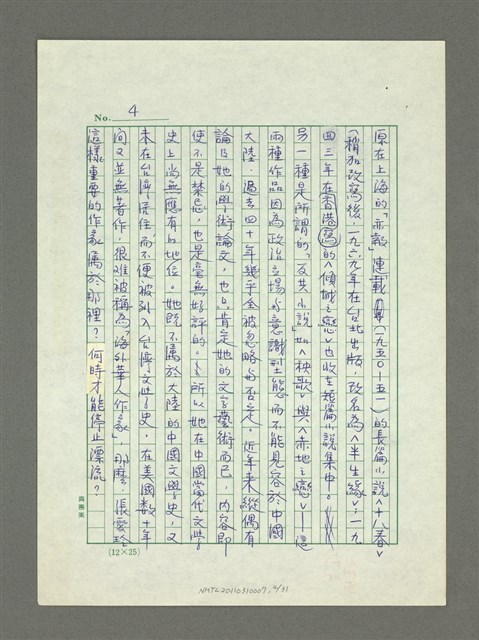 No. 4
原在上海的「亦報」連載(一九五〇－五一)的長篇小說〈十八春〉
(稍加改寫後,一九六九年在台北出版,改名為〈半生緣〉,一九
四三年在香港寫的〈傾城之戀〉也收在短篇小說集中。
另一種是所謂的「反共小說」如〈秧歌〉與〈赤地之戀〉——這
兩種作品因為政治立場與意識型態而不能見容於中國
大陸。過去四十年幾乎全被忽略與否定,近年來縱偶有
論及她的學術論文,也只肯定她的文字藝術而已,內容即
使不是禁忌,也是毫無好評的。所以她在中國當代文學
史上尚無應有的地位。她既不屬於大陸的中國文學史,又
未在台灣居住,而不便被列入台灣文學史,在美國數十年
間又並無著作,很難被稱為「海外華人作家」,那麼,張愛玲
這樣重要的作家屬於那裡?何時才能停止漂流?
(12×25)
NMTL20110310007, 4/31